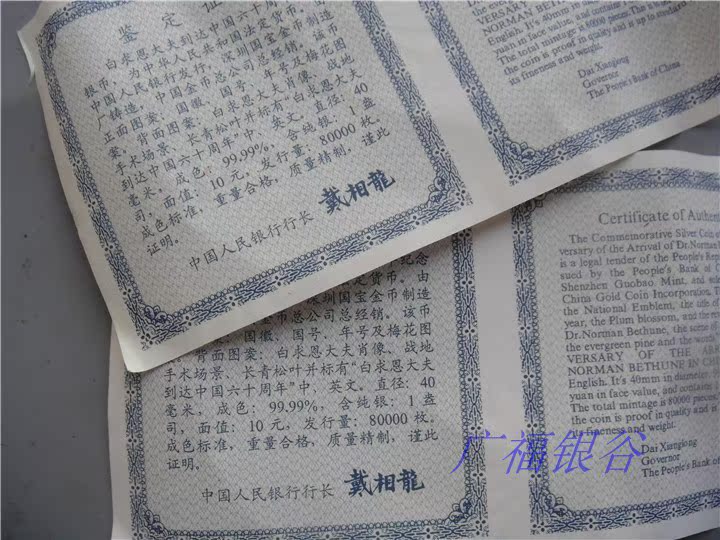 鉴定证
白求恩大夫到达中国六十周
银币，为中华人民共和国法定货币。
中国人民银行发行，深圳国宝金币制造
厂铸造，中国金币总公司总经销。该币
正面图案：国徽、国号、年号及梅花图
案，背面图案：白求恩大夫肖像、战地
手术场景、长青松叶并标有“白求恩大夫
到达中国六十周年”中、英文。直径：40
毫米，成色：99.99%，含纯银：1盎
司，面值：10元，发行量：80000枚。
成色标准，重量合格，质量精制，谨此
证明。
中国人民银行行长 戴相龍
VERSARY OF THE
NORMAN BETHUNE IN CHINA
English. It's 40mm in diameter,
yuan in face value, and contains
The total mintage is 80000 pieces. This is
the coin is proof in quality and is up to
its fineness and weight.
Dai Xianglong
Governor
The People's Bank of China
纪念
定货币。由
深圳国宝金币制造
币总公司总经销。该币
国徽、国号、年号及梅花图
背面图案：白求恩大夫肖像、战地
手术场景、长青松叶并标有“白求恩大夫
到达中国六十周年”中、英文。直径：40
毫米，成色：99.99%，含纯银：1盎
司，面值：10元，发行量：80000枚。
成色标准，重量合格，质量精制，谨此
证明。
中国人民银行行长 戴相龍
Certificate of Authen
The Commemorative Silver Coin
versary of the Arrival of Dr.Norman
is a legal tender of the People's Rep
sued by the People's Bank of
Shenzhen Guobao Mint, and
China Gold Coin Incorporation.
the National Emblem, the title of
year, the Plum blossom, and the
Dr.Norman Bethune, the scene of
the evergreen pine and the words
VERSARY OF THE
NORMAN BETHUNE IN CH
English. It's 40mm in diameter,
yuan in face value, and contains
The total mintage is 80000 pieces.
the coin is proof in quality and is
its fineness and weight.
Dai Xianglong
Governor
The People's Bank of
广福银谷